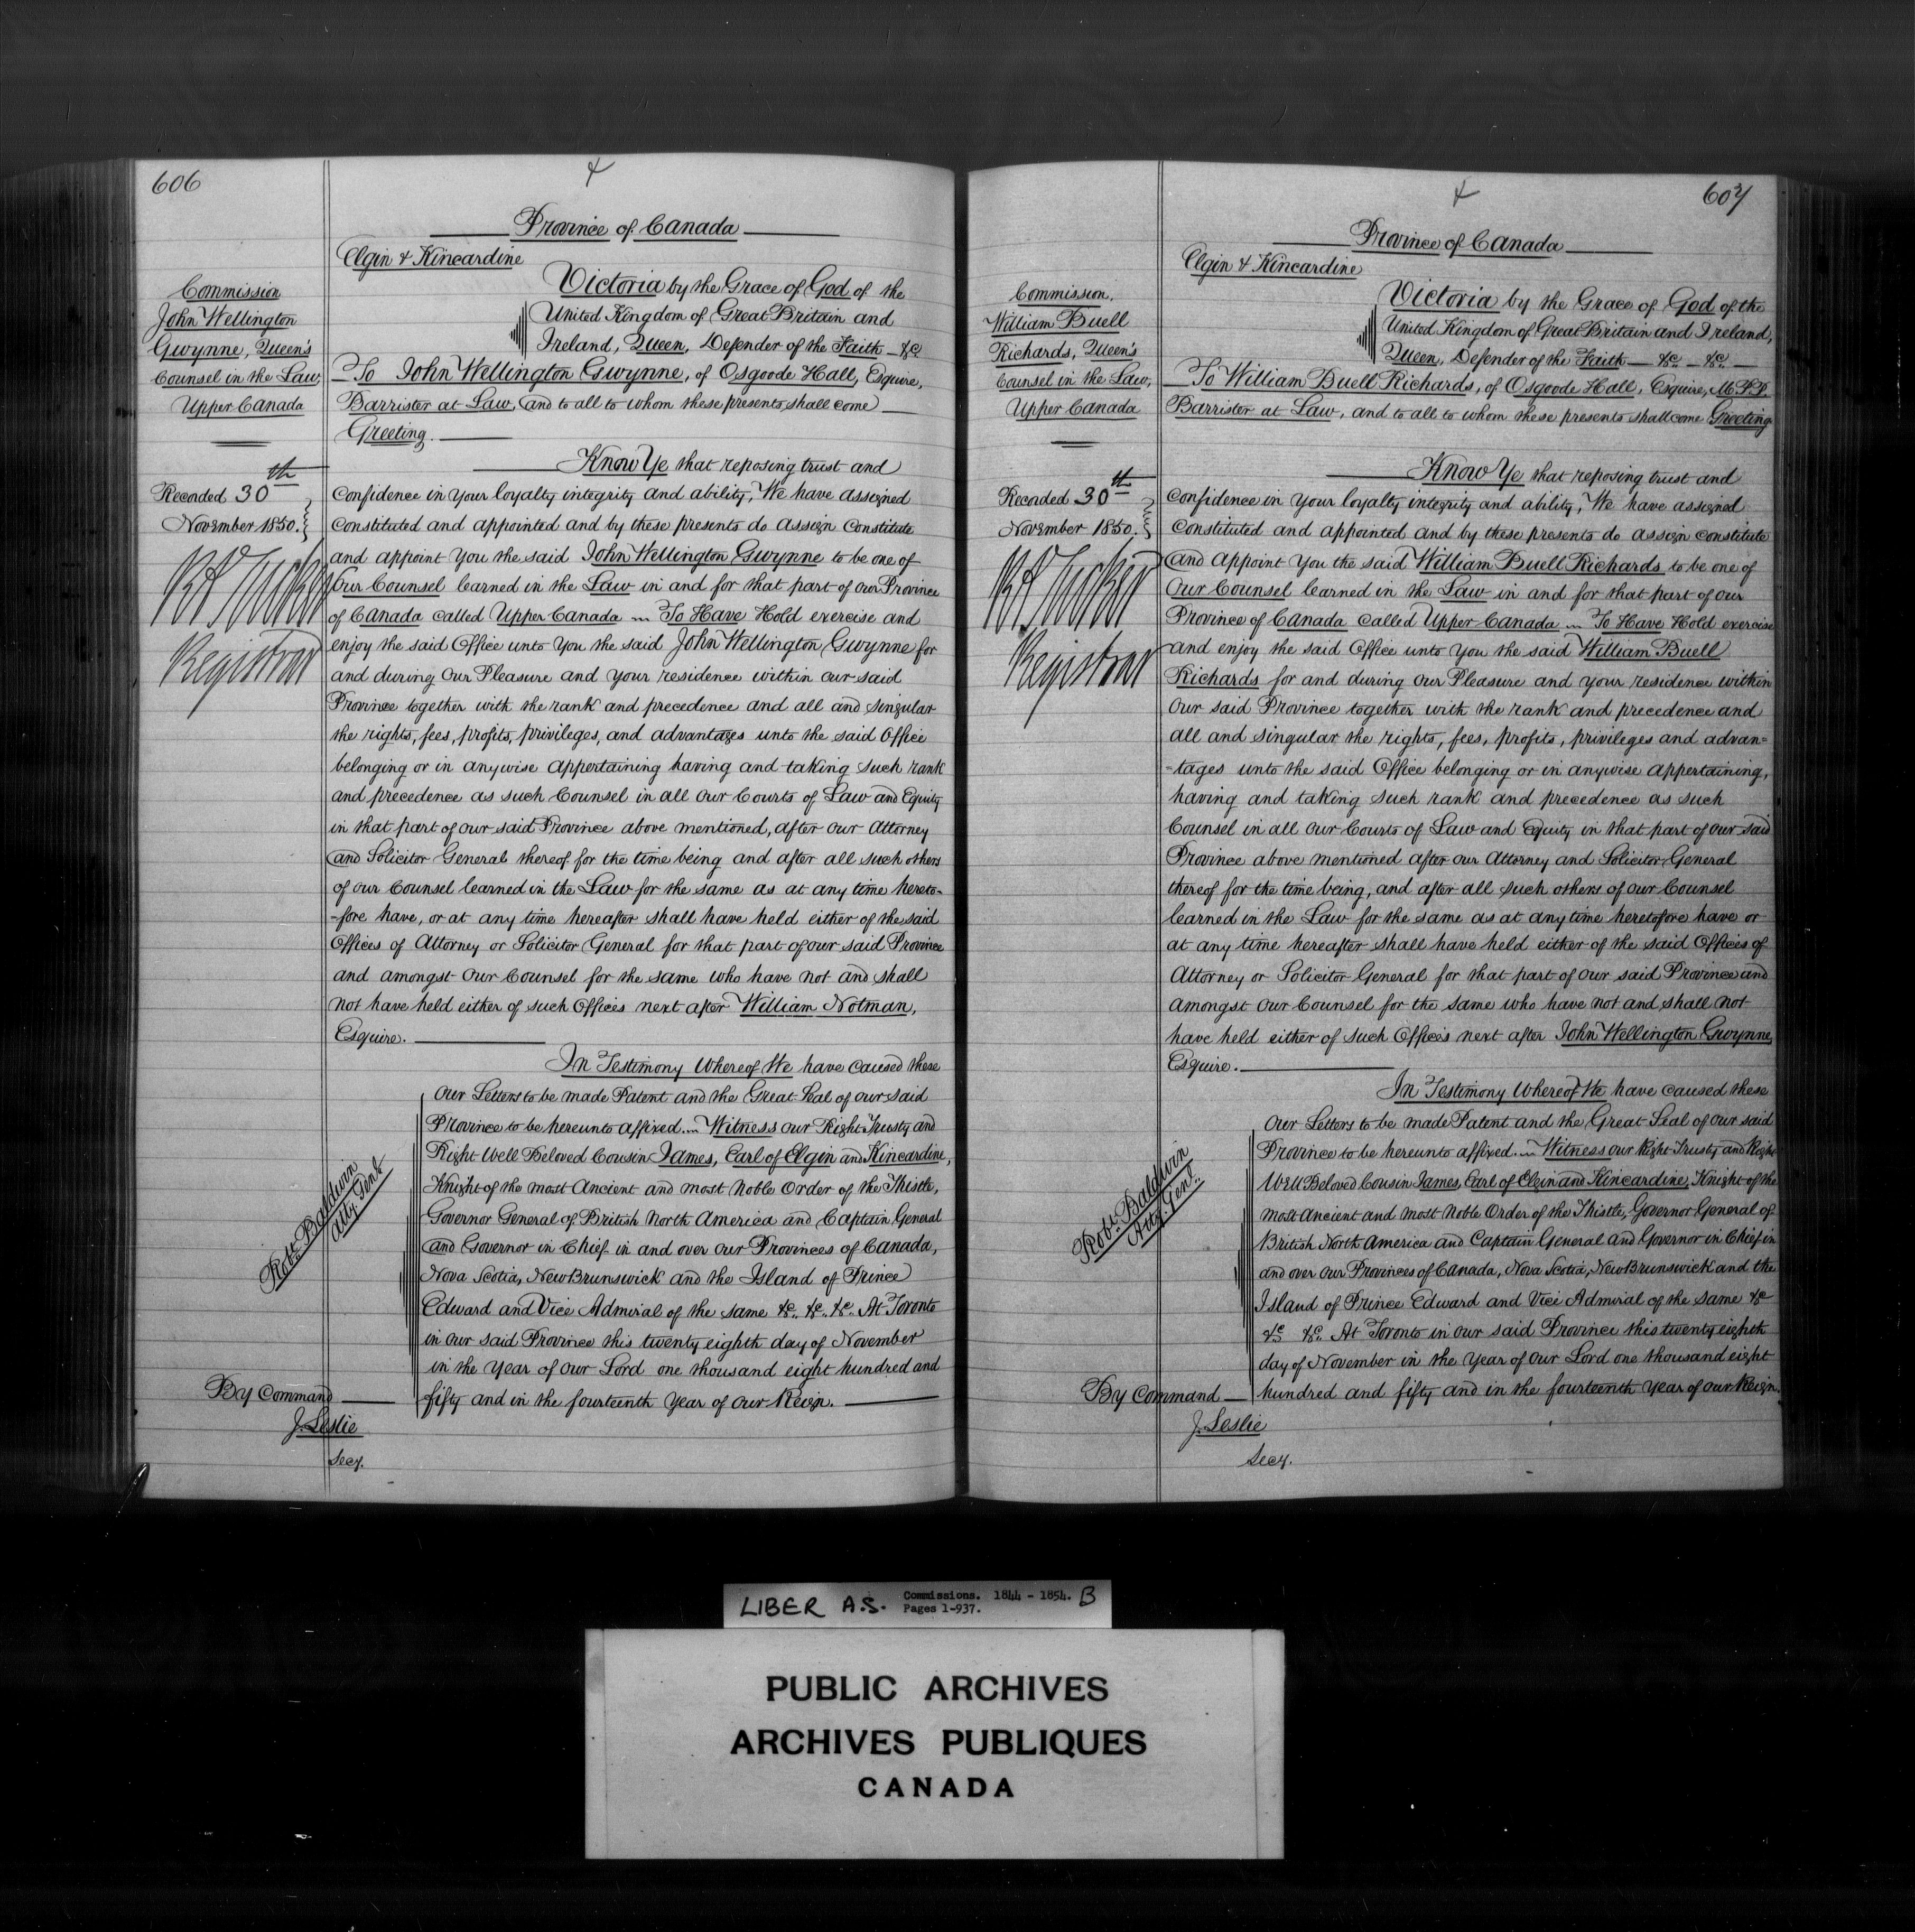 606
Province of Canada
Elgin & Kincardine
Commission
John Wellington
Gwynne, Queen's
Counsel in the Law,
Upper Canada
Recorded 30th
November 1850.
R A Tucker
Registrar
Victoria by the Grace of God of the
United Kingdom of Great Britain and
Ireland, Queen, Defender of the Faith - &c
To John Wellington Gwynne, of Osgoode Hall, Esquire,
Barrister at Law, and to all to whom these presents shall come
Greeting.
Know Ye that reposing trust and
confidence in Your loyalty integrity and ability, We have assigned
constituted and appointed and by these presents do assign constitute
and appoint You the said John Wellington Gwynne to be one of
Our Counsel learned in the Law in and for that part of our Province
of Canada called Upper Canada ... To Have Hold exercise and
enjoy the said Office unto You the said John Wellington Gwynne for
and during Our Pleasure and your residence within our said
Province together with the rank and precedence and all and singular
the rights, fees, profits, privileges, and advantages unto the said Office
belonging or in anywise appertaining having and taking such rank
and precedence as such Counsel in all Our Courts of Law and Equity
in that part of our said Province above mentioned, after our Attorney
and Solicitor General thereof for the time being and after all such others
of our Counsel learned in the Law for the same as at any time hereto-
-fore have, or at any time hereafter shall have held either of the said
Offices of Attorney or Solicitor General for that part of our said Province
and amongst Our Counsel for the same who have not and shall
not have held either of such Offices next after William Notman,
Esquire.
In Testimony Whereof We have caused these
Our Letters to be made Patent and the Great Seal of our said
Province to be hereunto affixed ... Witness our Right Trusty and
Right Well Beloved Cousin James, Earl of Elgin and Kincardine,
Knight of the most Ancient and most Noble Order of the Thistle,
Governor General of British North America and Captain General
and Governor in Chief in and over our Provinces of Canada,
Nova Scotia, New Brunswick and the Island of Prince
Edward and Vice Admiral of the same &c. &c. &c. At Toronto
in our said Province this twenty eighth day of November
in the Year of our Lord one thousand eight hundred and
fifty and in the fourteenth Year of our Reign.
Robt. Baldwin
Atty. Genl.
By Command
J. Leslie
Secy.
607
Province of Canada
Elgin & Kincardine
Commission.
William Buell
Richards, Queen's
Counsel in the Law,
Upper Canada
Recorded 30th
November 1850.
R A Tucker
Registrar
Victoria by the Grace of God of the
United Kingdom of Great Britain and Ireland,
Queen, Defender of the Faith - &c - &c -
To William Buell Richards, of Osgoode Hall, Esquire, M.P.P.
Barrister at Law, and to all to whom these presents shall come Greeting.
Know Ye that reposing trust and
confidence in Your loyalty integrity and ability, We have assigned
constituted and appointed and by these presents do assign constitute
and appoint You the said William Buell Richards to be one of
Our Counsel learned in the Law in and for that part of our
Province of Canada called Upper Canada ... To Have Hold exercise
and enjoy the said Office unto You the said William Buell
Richards for and during Our Pleasure and your residence within
Our said Province together with the rank and precedence and
all and singular the rights, fees, profits, privileges and advan=
-tages unto the said Office belonging or in anywise appertaining,
having and taking such rank and precedence as such
Counsel in all Our Courts of Law and Equity in that part of our said
Province above mentioned after our Attorney and Solicitor General
thereof for the time being, and after all such others of our Counsel
learned in the Law for the same as at any time heretofore have or
at any time hereafter shall have held either of the said Offices of
Attorney or Solicitor General for that part of our said Province and
amongst Our Counsel for the same who have not and shall not
have held either of such Offices next after John Wellington Gwynne,
Esquire.
In Testimony Whereof We have caused these
Our Letters to be made Patent and the Great Seal of our said
Province to be hereunto affixed ... Witness our Right Trusty and Right
Well Beloved Cousin James, Earl of Elgin and Kincardine, Knight of the
most Ancient and most Noble Order of the Thistle, Governor General of
British North America and Captain General and Governor in Chief in
and over our Provinces of Canada, Nova Scotia, New Brunswick and the
Island of Prince Edward and Vice Admiral of the same &c
&c &c. At Toronto in our said Province this twenty eighth
day of November in the Year of our Lord one thousand eight
hundred and fifty and in the fourteenth Year of our Reign.
Robt. Baldwin
Atty. Genl.
By Command
J. Leslie
Secy.
LIBER A.S. Commissions. 1844 - 1854. B
Pages 1-937.
PUBLIC ARCHIVES
ARCHIVES PUBLIQUES
CANADA